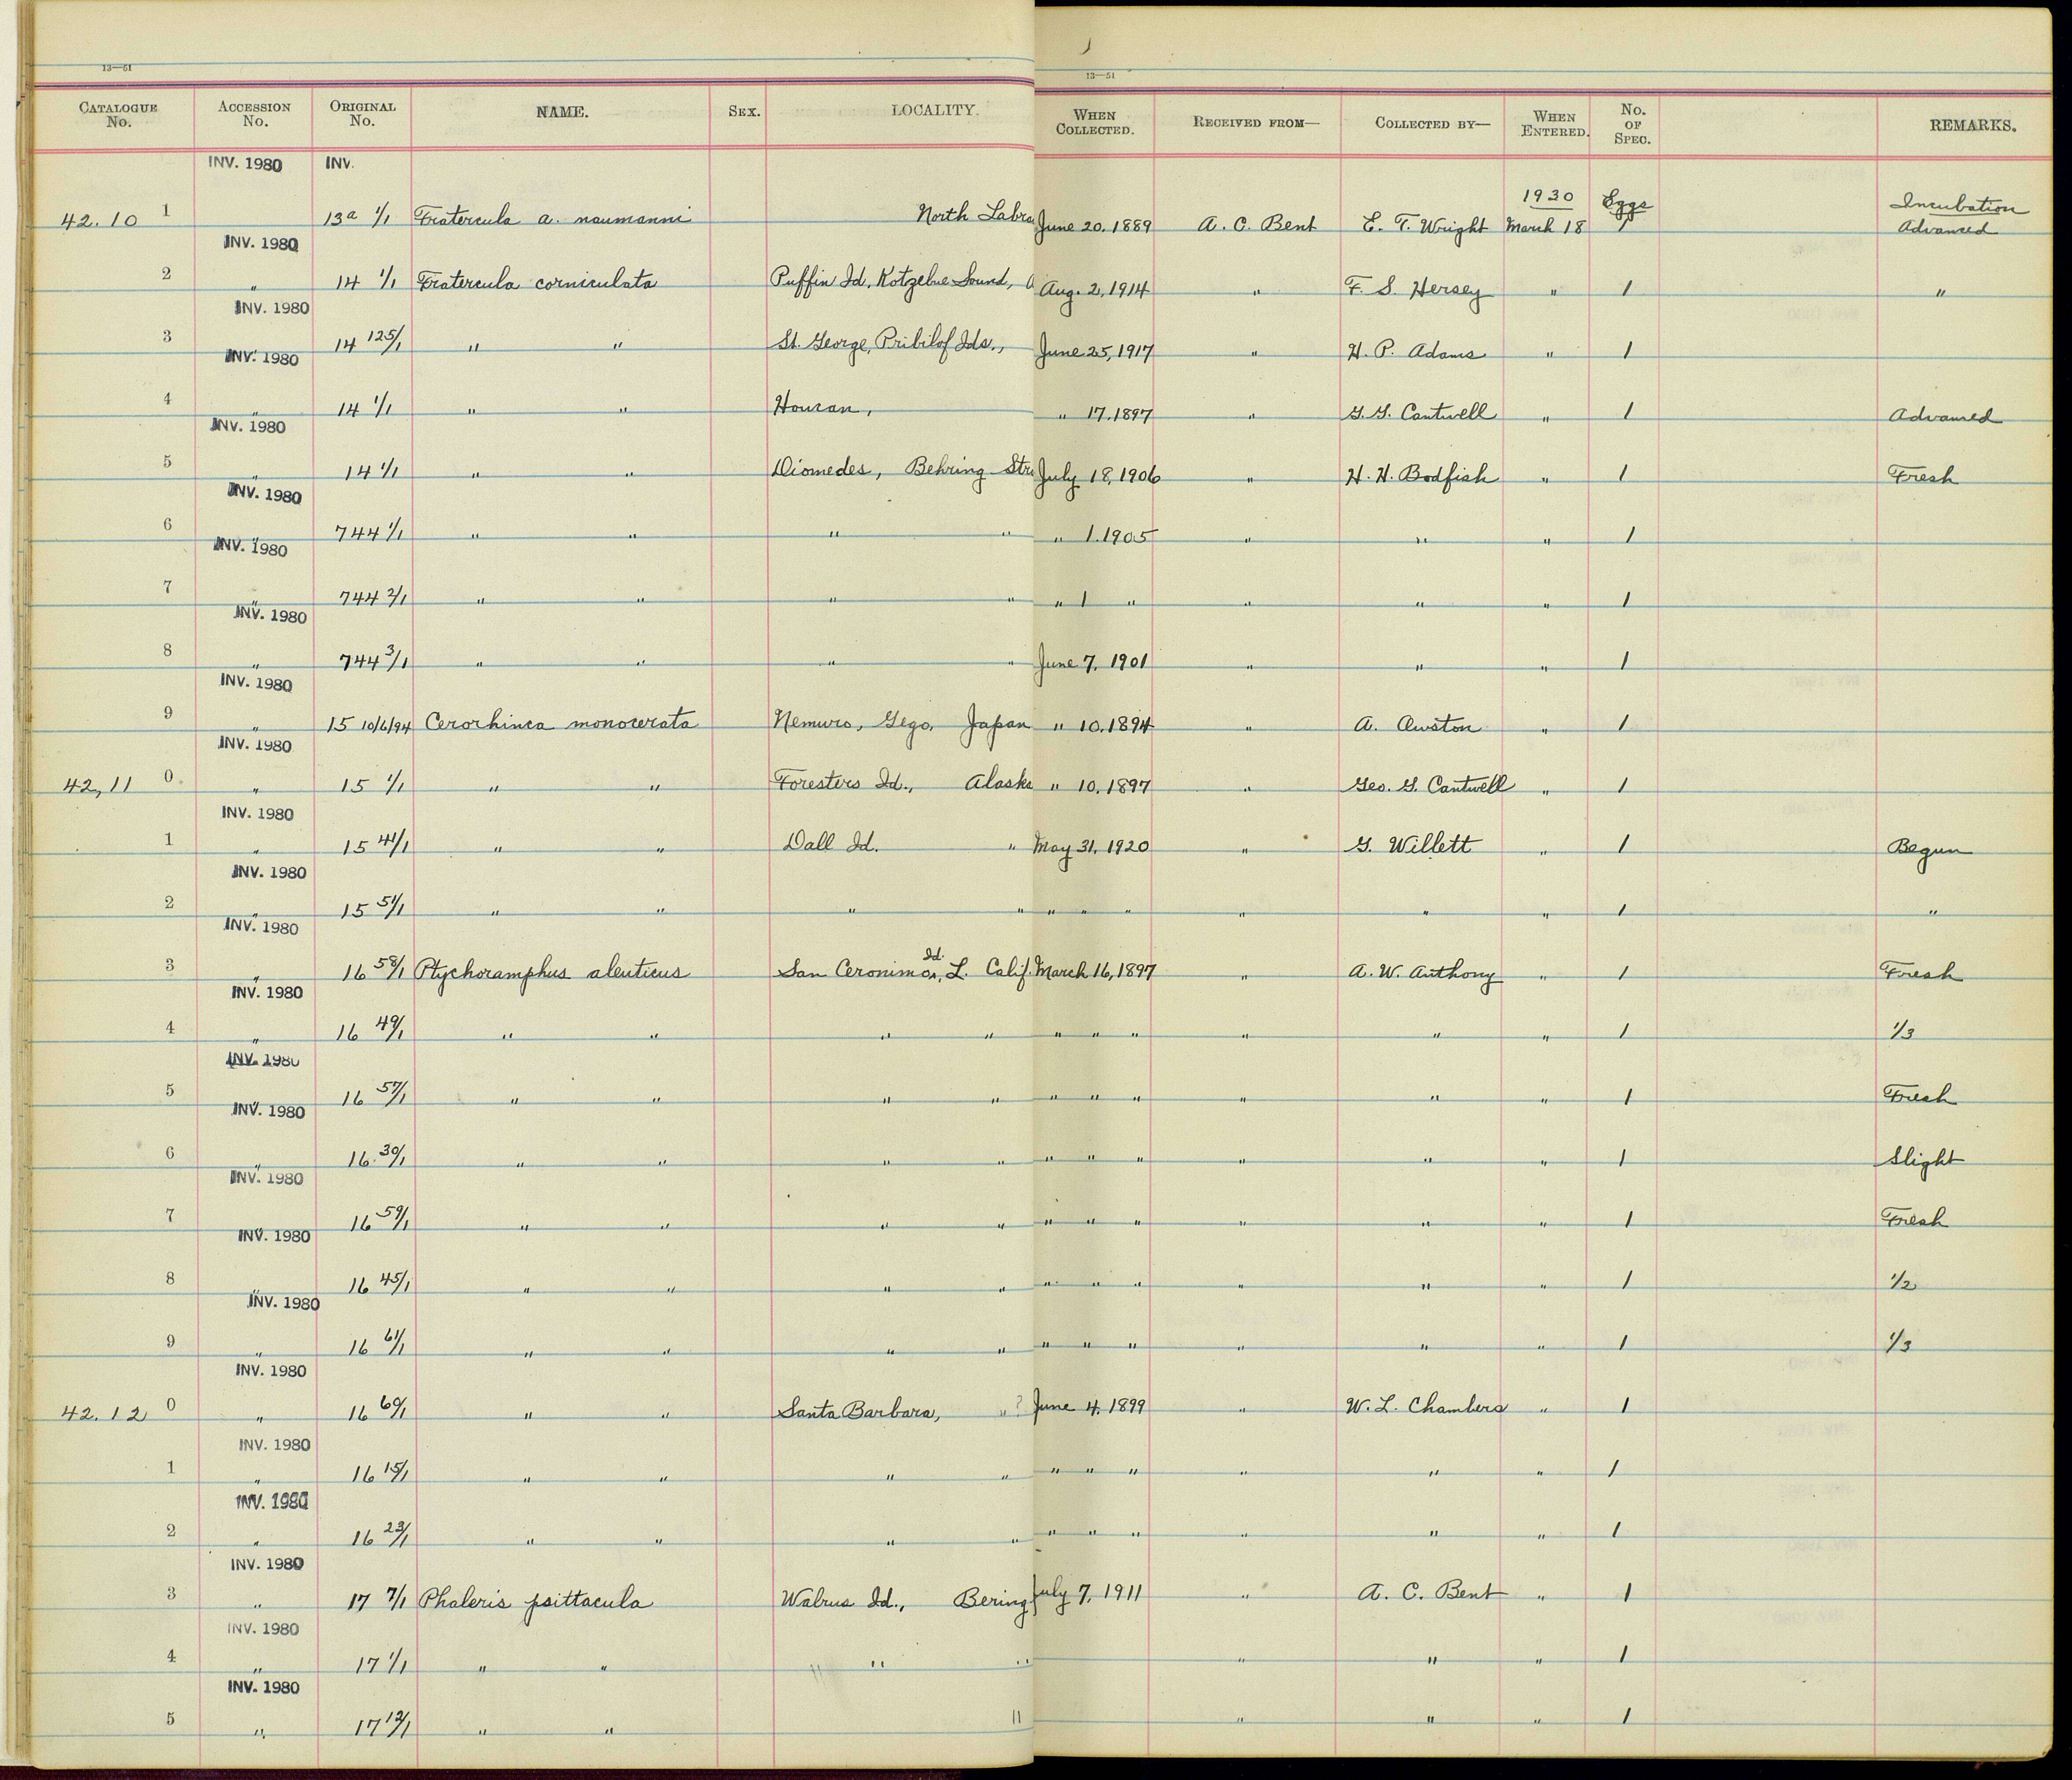 13—51
13—51
CATALOGUE No. ACCESSION No. ORIGINAL No. NAME. SEX. LOCALITY. WHEN COLLECTED. RECEIVED FROM— COLLECTED BY— WHEN ENTERED. No. OF SPEC. REMARKS.
INV. 1980 INV.
1930 Eggs Incubation
42.10 1 13a 1/1 Fratercula a. naumanni North Labra June 20, 1889 A. C. Bent E. T. Wright March 18 1 Advanced
INV. 1980
2 " 14 1/1 Fratercula corniculata Puffin Id, Kotzebue Sound, Aug. 2, 1914 " F. S. Hersey " 1 "
INV. 1980
3 14 125/1 " " St. George, Pribilof Ids., June 25, 1917 " H. P. Adams " 1
INV. 1980
4 " 14 1/1 " " Howcan, " 17, 1897 " G. G. Cantwell " 1 Advanced
INV. 1980
5 " 14 1/1 " " Diomedes, Behring Stra July 18, 1906 " H. H. Bodfish " 1 Fresh
INV. 1980
6 " 744 1/1 " " " " " 1, 1905 " " " 1
INV. 1980
7 " 744 2/1 " " " " " 1 " " " " 1
INV. 1980
8 " 744 3/1 " " " " June 7, 1901 " " " 1
INV. 1980
9 " 15 10/6/94 Cerorhinca monocerata Nemuro, Yego, Japan " 10, 1894 " A. Owston " 1
INV. 1980
42,11 0 " 15 1/1 " " Foresters Id., Alaska " 10, 1897 " Geo. G. Cantwell " 1
INV. 1980
1 " 15 41/1 " " Dall Id. " May 31, 1920 " G. Willett " 1 Begun
INV. 1980
2 " 15 51/1 " " " " " " " " " " 1 "
INV. 1980
3 " 16 58/1 Ptychoramphus aleuticus San Ceronimos Id., L. Calif. March 16, 1897 " A. W. Anthony " 1 Fresh
INV. 1980
4 " 16 49/1 " " " " " " " " " " 1 1/3
INV. 1980
5 " 16 57/1 " " " " " " " " " " 1 Fresh
INV. 1980
6 " 16 30/1 " " " " " " " " " " 1 Slight
INV. 1980
7 16 59/1 " " " " " " " " " " 1 Fresh
INV. 1980
8 " 16 45/1 " " " " " " " " " " 1 1/2
INV. 1980
9 " 16 61/1 " " " " " " " " " " 1 1/3
INV. 1980
42.12 0 " 16 60/1 " " Santa Barbara, " ? June 4, 1899 " W. L. Chambers " 1
INV. 1980
1 " 16 15/1 " " " " " " " " " " 1
INV. 1980
2 " 16 23/1 " " " " " " " " " " 1
INV. 1980
3 " 17 7/1 Phaleris psittacula Walrus Id., Bering July 7, 1911 " A. C. Bent " 1
INV. 1980
4 " 17 1/1 " " " " " " " " 1
INV. 1980
5 " 17 12/1 " " " " " " 1